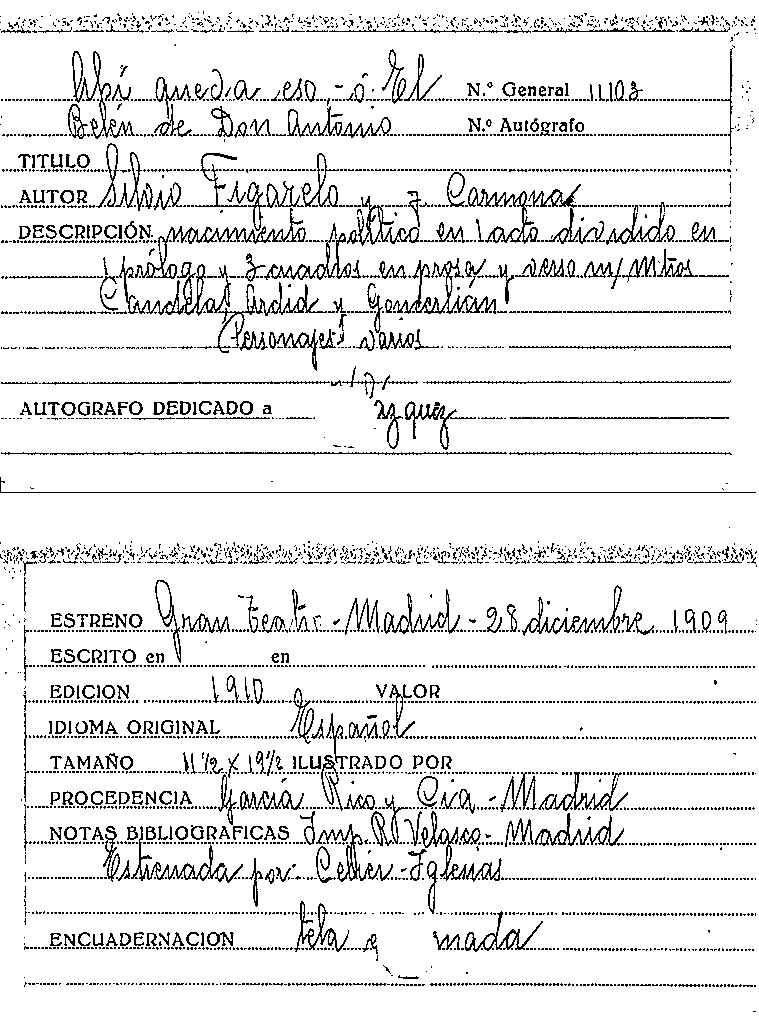 Ahí queda eso - ó: El N.º General 11103
Belén de Don Antonio N.º Autógrafo
TITULO
AUTOR Silvio Figarelo y J. Carmona
DESCRIPCIÓN nacimiento político en 1 acto dividido en
1 prólogo y 3 cuadros en prosa y verso m/ Mtros
Candela, Ardid y
(Personajes) varios
AUTOGRAFO DEDICADO a
ESTRENO Gran Teatro - Madrid - 28 diciembre 1909
ESCRITO en en
EDICION 1910 VALOR
IDIOMA ORIGINAL Español
TAMAÑO 11 1/2 X 19 1/2 ILUSTRADO POR
PROCEDENCIA García Rico y Cia - Madrid
NOTAS BIBLIOGRAFICAS Imp. R. Velasco - Madrid
Estrenada por: - Iglesias
ENCUADERNACION tela